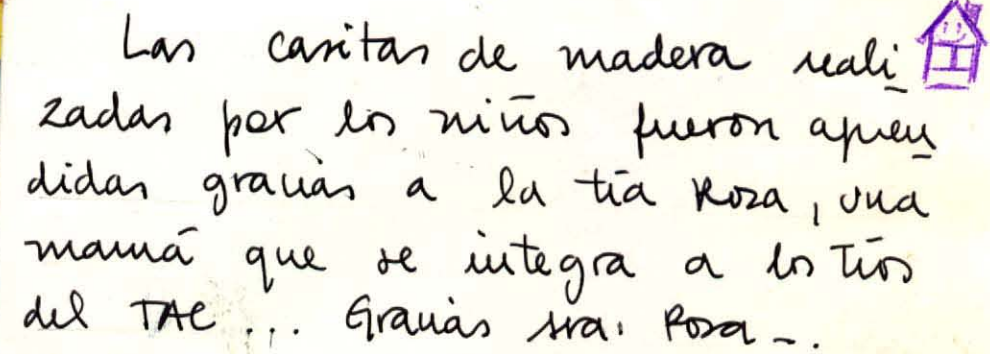 Las casitas de madera reali
zadas por los niños fueron apren
didas gracias a la tía Rosa, una
mamá que se integra a los tíos
del TAC... Gracias sra. Rosa -.